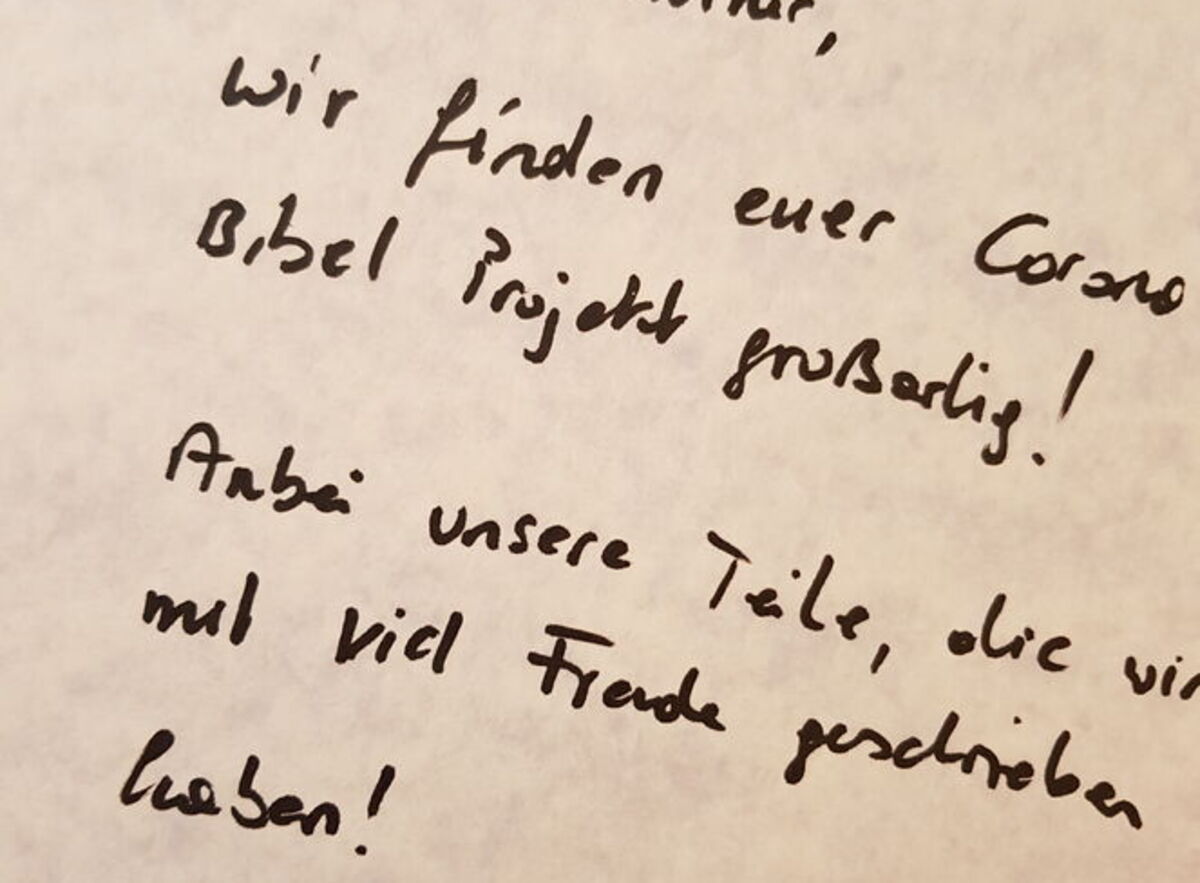 wir finden euer Corona
Bibel Projekt großartig!
Anbei unsere Teile, die wir
mit viel Freude geschrieben
haben!